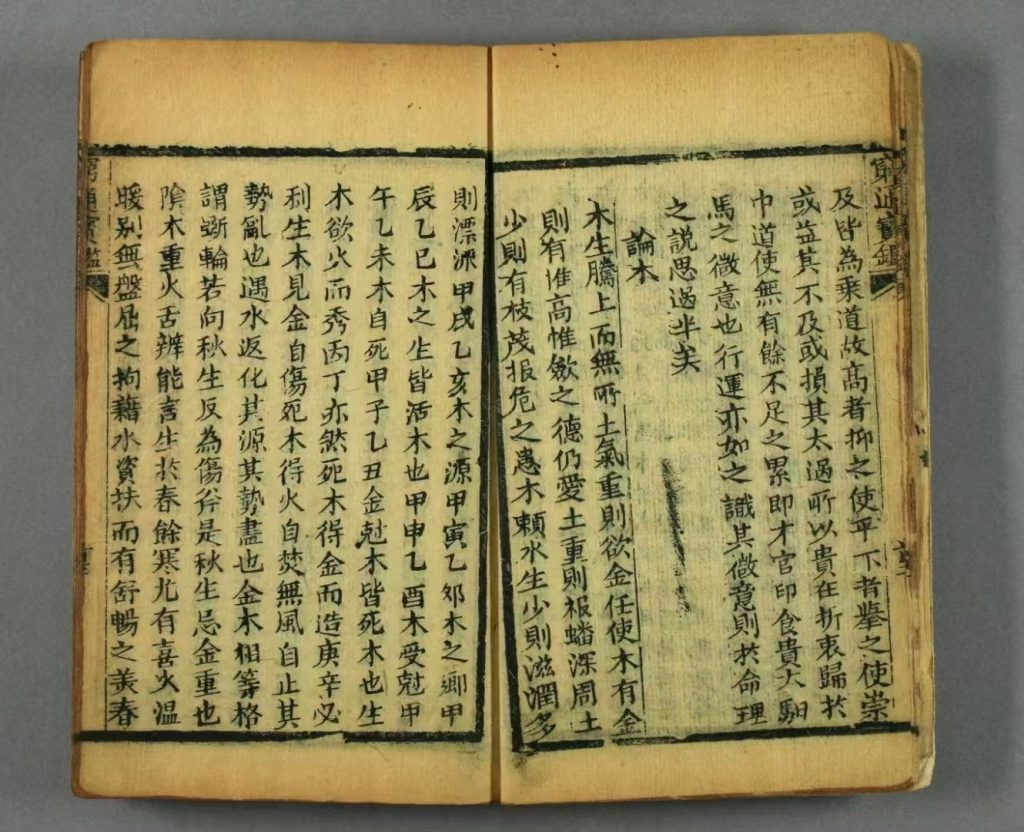 窮通寶鑑
及皆為乗道故高者抑之使平下者舉之使崇
或益其不及或損其太過所以貴在折衷歸於
中道使無有餘不足之累即才官印食貴人馹
馬之微意也行運亦如之識其微意則於命理
之說思過半矣
論木
木生騰上而無所止氣重則欲金任使木有金
則有惟高惟斂之德仍愛土重則根蟠深周土
少則有枝茂根危之患木頼水生少則滋潤多
則漂流甲戌乙亥木之源甲寅乙卯木之鄉甲
辰乙巳木之生皆活木也甲申乙酉木受尅甲
午乙未木自死甲子乙丑金尅木皆死木也生
木欲火而秀丙丁亦然死木得金而造庚辛必
利生木見金自傷死木得火自焚無風自止其
勢亂也遇水返化其源其勢盡也金木相等格
謂斵輪若向秋生反為傷斧是秋生忌金重也
陰木重火舌辨能言生於春餘寒尤有喜火温
暖别無盤屈之拘藉水資扶而有舒暢之美春
窮通寶鑑